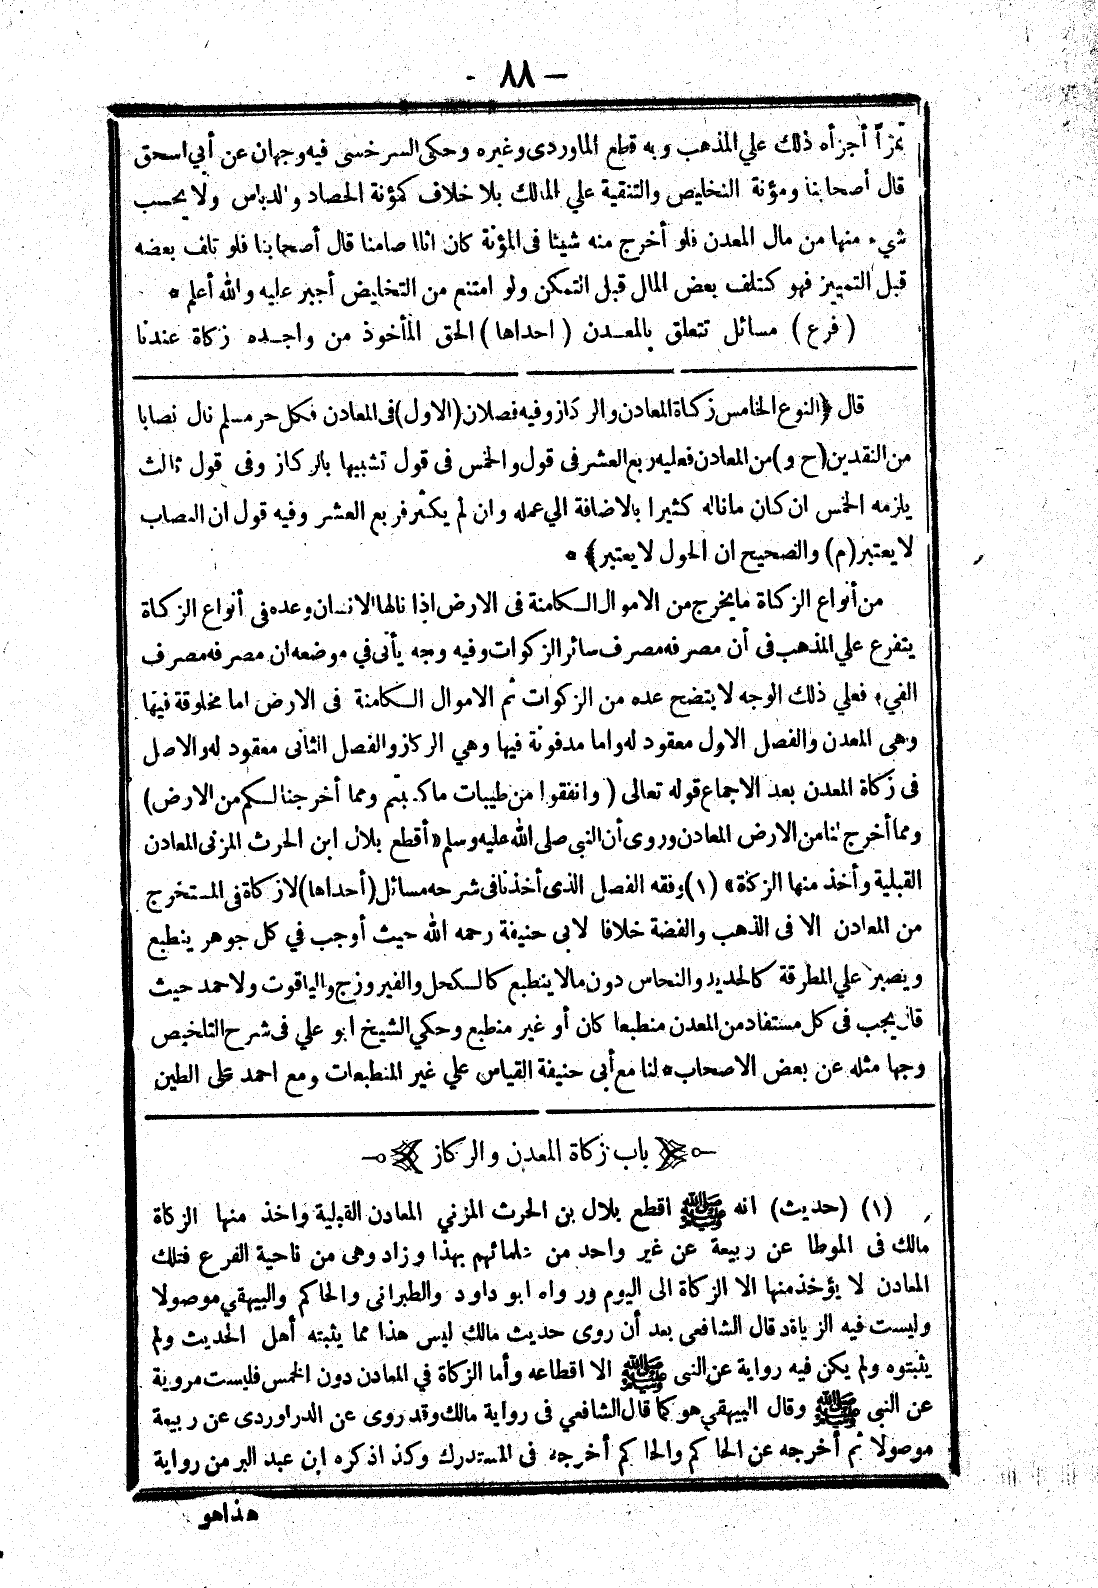 — ٨٨ -
تمزأ أجزأه ذلك علي المذهب وبه قطع الماوردى وغيره وحكى السرخسى فيه وجهان عن أبي اسحق
قال أصحابنا ومؤنة التخليص والتنقية علي المالك بلا خلاف كمؤنة الحصاد والدياس ولا يحسب
شيء منها من مال المعدن فلو أخرج منه شيئا فى المؤنة كان اثما ضامنا قال أصحابنا فلو تلف بعضه
قبل التمييز فهو كتلف بعض المال قبل التمكن ولو امتنع من التخليص أجبر عليه والله أعلم *
( فرع ) مسائل تتعلق بالمعدن ( احداها ) الحق المأخوذ من واجده زكاة عندنا
قال ﴿النوع الخامس زكاة المعادن والركاز وفيه فصلان (الاول) فى المعادن فكل حر مسلم نال نصابا
من النقدين (ح و) من المعادن فعليه ربع العشر فى قول والخمس فى قول تشبيها بالركاز وفى قول ثالث
يلزمه الخمس ان كان ما ناله كثيرا بالاضافة الي عمله وان لم يكثر فربع العشر وفيه قول ان النصاب
لا يعتبر (م) والصحيح ان الحول لا يعتبر﴾ *
من أنواع الزكاة ما يخرج من الاموال الكامنة فى الارض اذا نالها الانسان وعده فى أنواع الزكاة
يتفرع علي المذهب فى أن مصرفه مصرف سائر الزكوات وفيه وجه يأتى في موضعه ان مصرفه مصرف
الفيء فعلي ذلك الوجه لا يتضح عده من الزكوات ثم الاموال الكامنة فى الارض اما مخلوقة فيها
وهى المعدن والفصل الاول معقود له واما مدفونة فيها وهي الركاز والفصل الثانى معقود له والاصل
فى زكاة المعدن بعد الاجماع قوله تعالى ( وانفقوا من طيبات ما كسبتم ومما أخرجنا لكم من الارض)
ومما أخرج لنا من الارض المعادن وروى أن النبي صلى الله عليه وسلم «أقطع بلال ابن الحرث المزنى المعادن
القبلية وأخذ منها الزكاة» (١) وفقه الفصل الذى أخذنا فى شرحه مسائل (أحداها) لا زكاة فى المستخرج
من المعادن الا فى الذهب والفضة خلافا لابى حنيفة رحمه الله حيث أوجب في كل جوهر ينطبع
ويصبر علي المطرقة كالحديد والنحاس دون مالا ينطبع كالكحل والفيروزج والياقوت ولاحمد حيث
قال يجب فى كل مستفاد من المعدن منطبعا كان أو غير منطبع وحكي الشيخ ابو علي فى شرح التلخيص
وجها مثله عن بعض الاصحاب* لنا مع أبى حنيفة القياس علي غير المنطبعات ومع احمد على الطين
باب زكاة المعدن والركاز
(١) (حديث) انه ﷺ اقطع بلال بن الحرث المزني المعادن القبلية واخذ منها الزكاة
مالك فى الموطا عن ربيعة عن غير واحد من علمائهم بهذا وزاد وهى من ناحية الفرع فتلك
المعادن لا يؤخذ منها الا الزكاة الى اليوم ورواه ابو داود والطبرانى والحاكم والبيهقي موصولا
وليست فيه الزيادة قال الشافعى بعد أن روى حديث مالك ليس هذا مما يثبته أهل الحديث ولم
يثبتوه ولم يكن فيه رواية عن النبى ﷺ الا اقطاعه وأما الزكاة في المعادن دون الخمس فليست مروية
عن النبى ﷺ وقال البيهقي هو كما قال الشافعي فى رواية مالك وقد روى عن الدراوردى عن ربيعة
موصولا ثم أخرجه عن الحاكم والحاكم أخرجه فى المستدرك وكذا ذكره ابن عبد البر من رواية
هذا هو